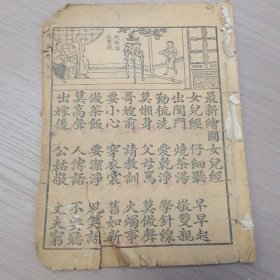 最新繪圖女兒經
女兒經 仔細聽 早早起
出閨門 燒茶湯 敬雙親
勤梳洗 愛乾淨 學針線
莫懶身 父母罵 莫做聲
哥嫂前 請教訓 火燭事
要小心 穿衣裳 舊如新
做茶飯 要潔淨 見笑話
莫高聲 人傳話 不要聽
出嫁後 公姑敬 丈夫窮